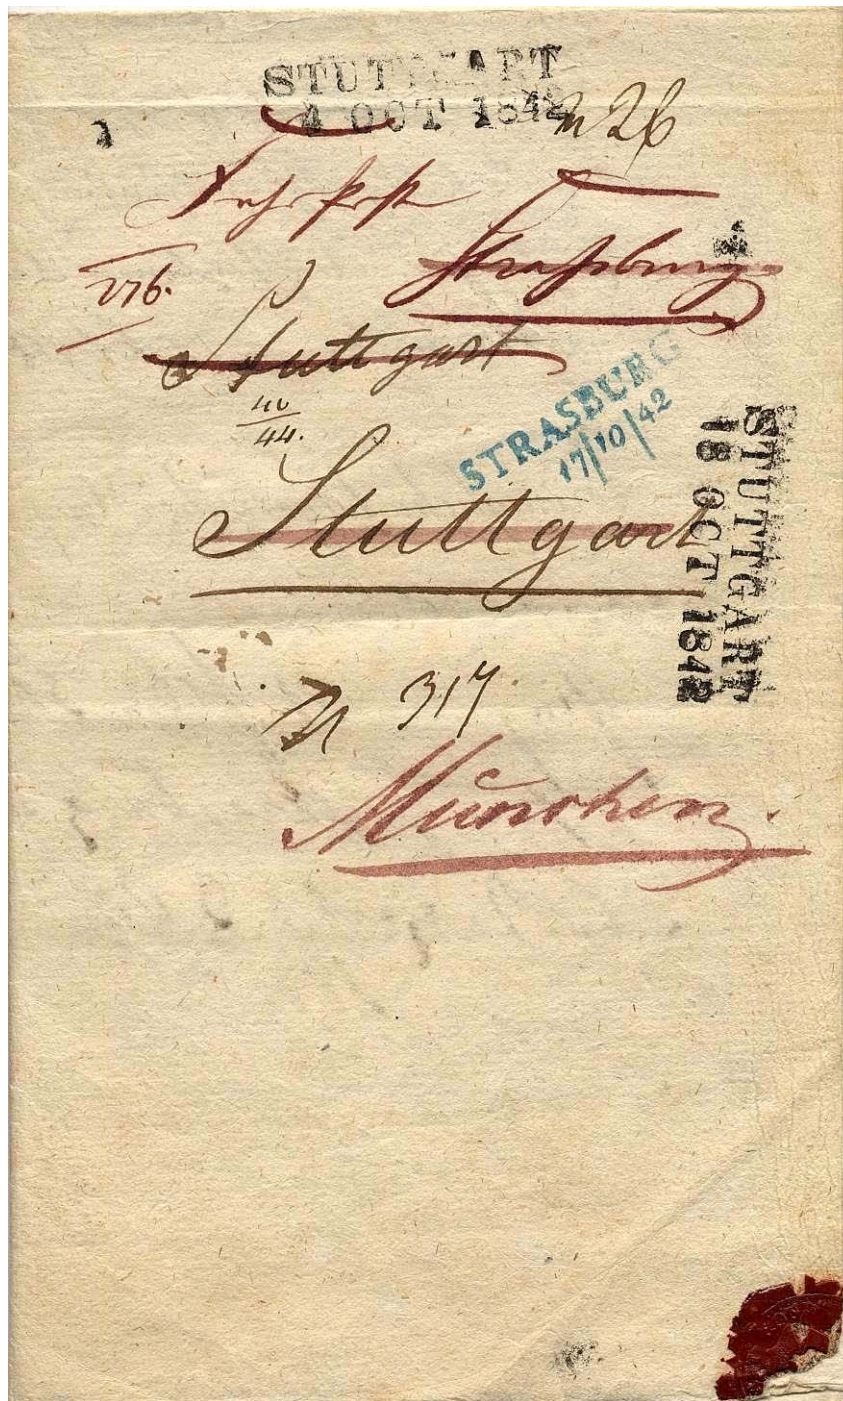 STUTTGART
4 OCT 1842
N 26
Fahrpost
Straßburg
276.
Stuttgart
44.
STRASBURG
17/10/42
STUTTGART
18 OCT 1842
Stuttgart
N 317
München.